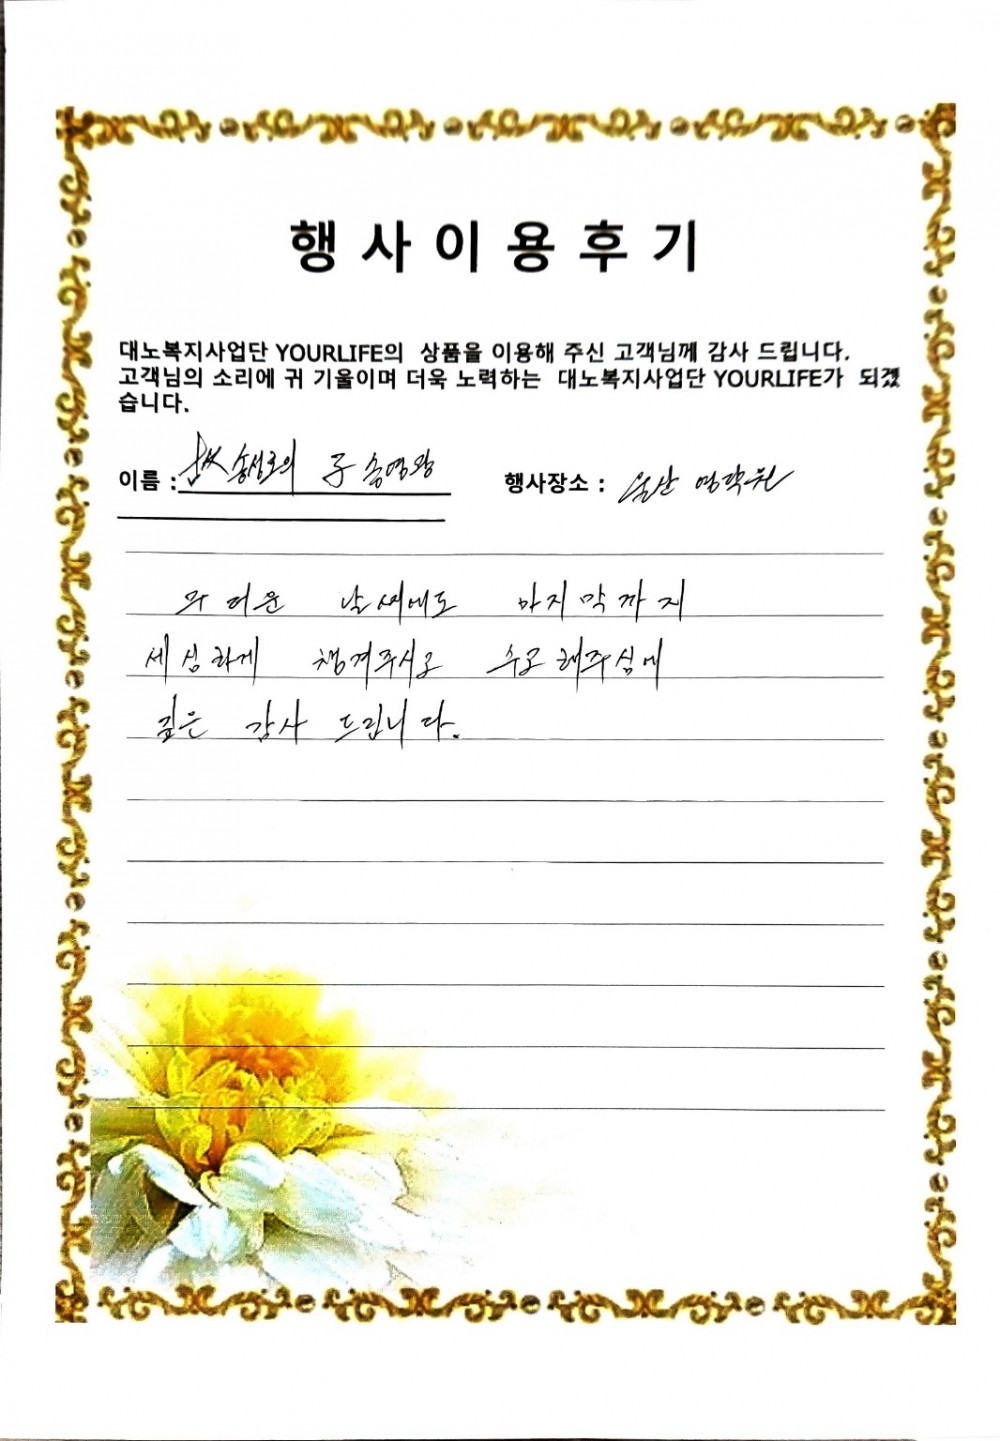 행사이용후기
대노복지사업단 YOURLIFE의 상품을 이용해 주신 고객님께 감사 드립니다.
고객님의 소리에 귀 기울이며 더욱 노력하는 대노복지사업단 YOURLIFE가 되겠
습니다.
이름 : 故 송성호의 子 송영광 행사장소 : 울산 영락원
무더운 날씨에도 마지막까지
세심하게 챙겨주시고 수고해주심에
깊은 감사 드립니다.